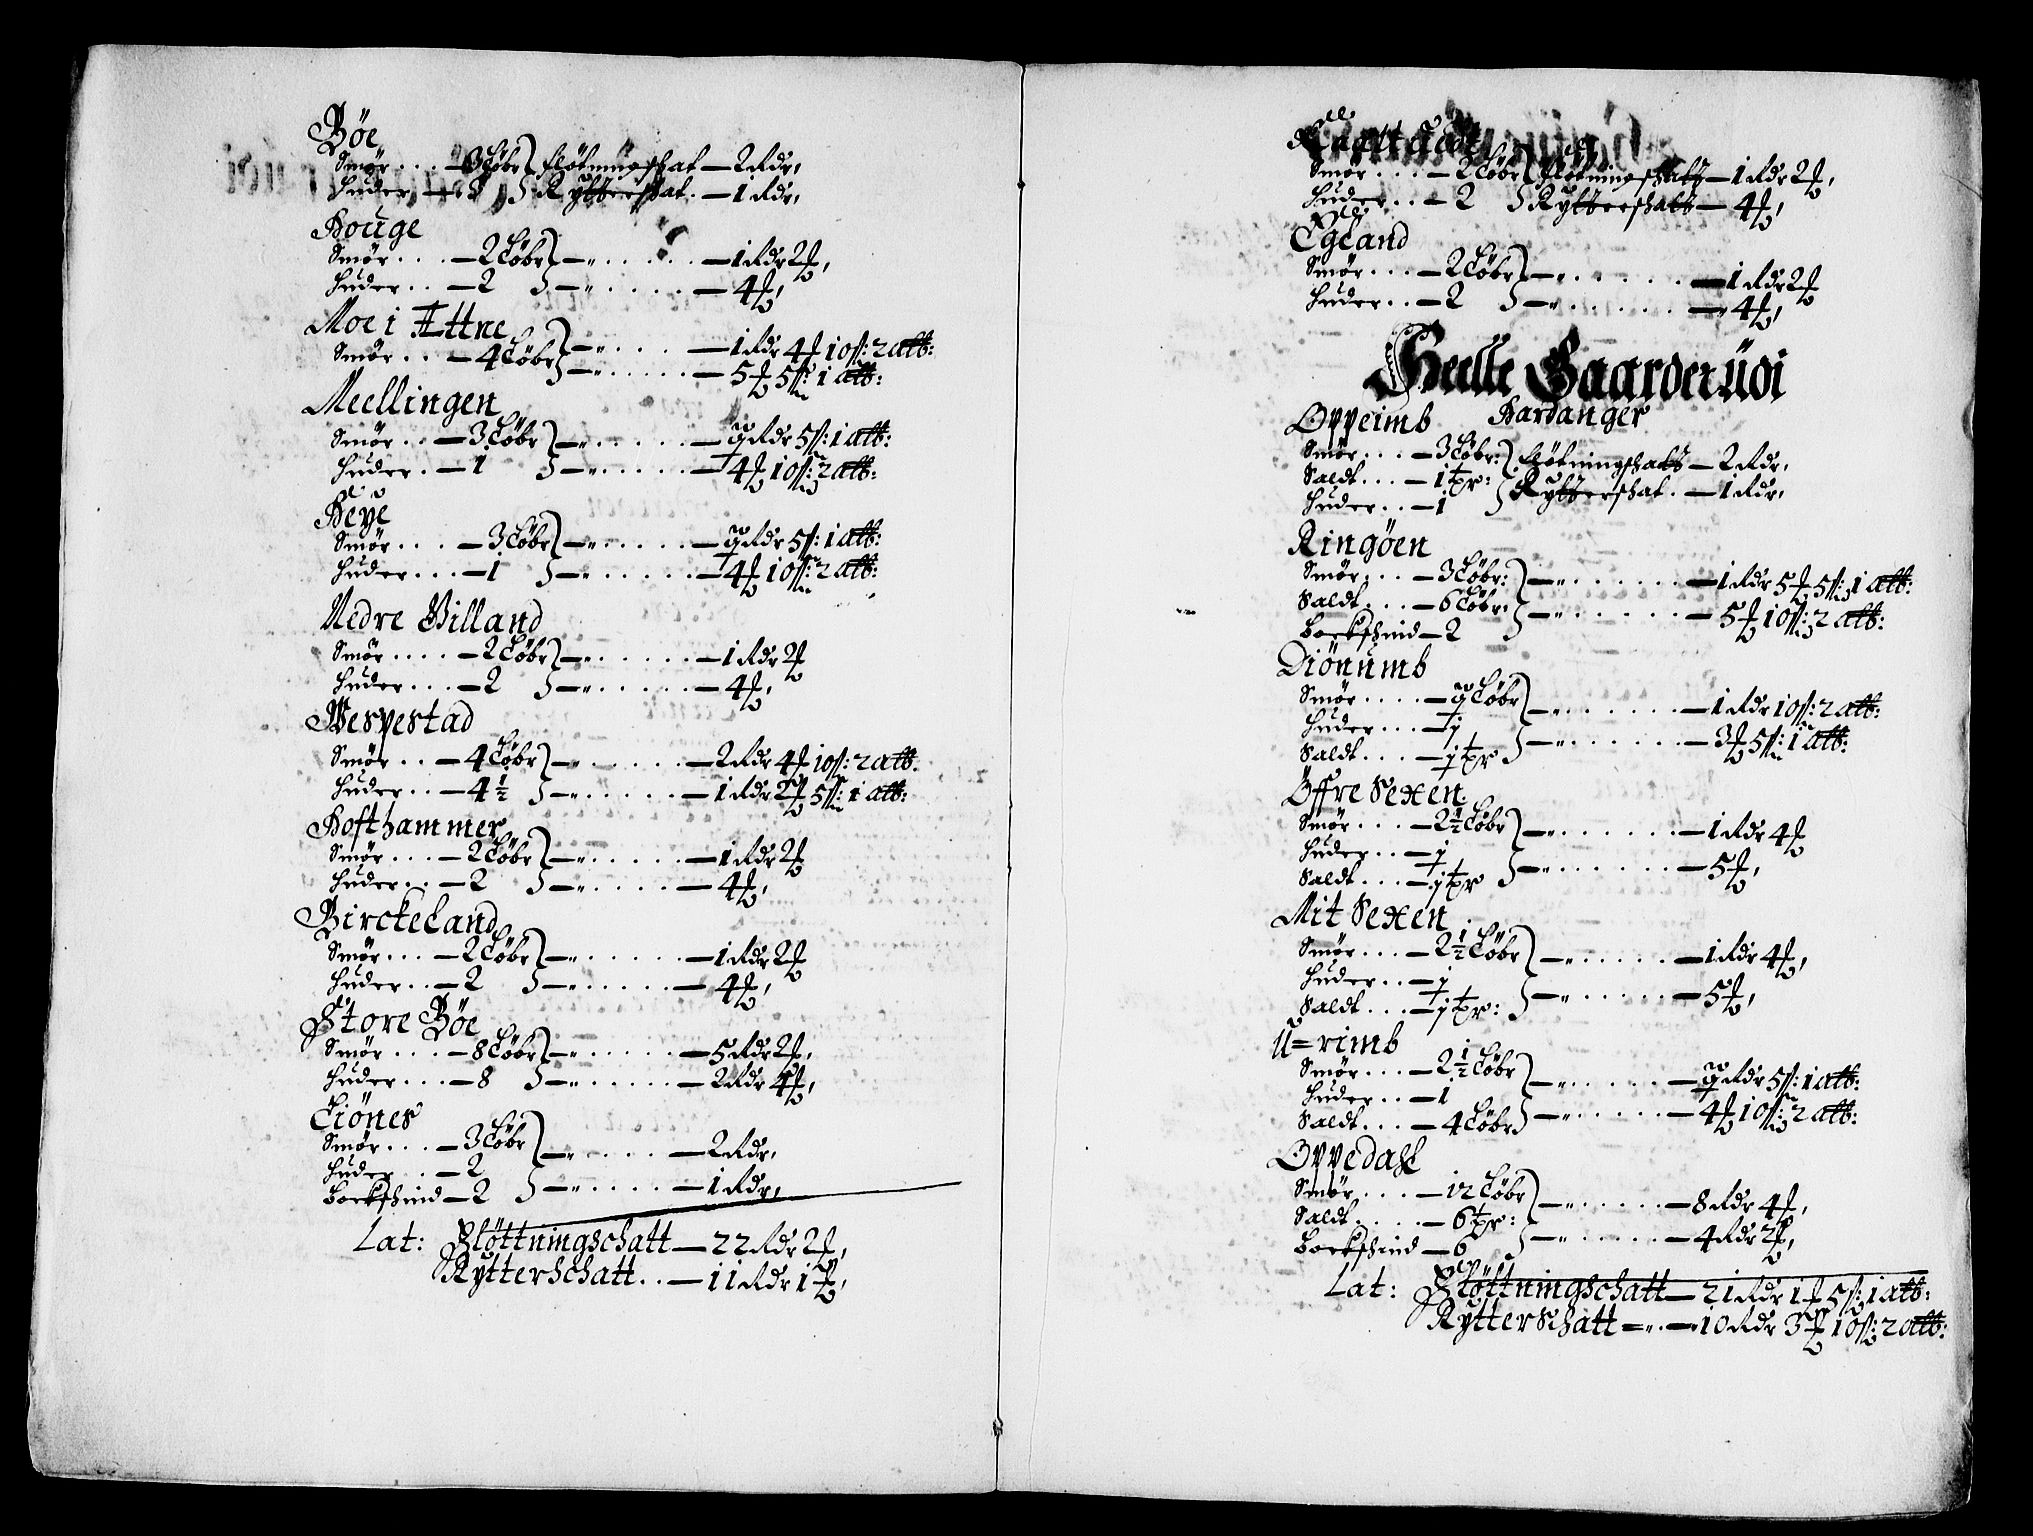 Böe
Smör . . . — 3 Löbr } fløtningschat — 2 Rdr,
Huder — 3 } Rytterschat . — 1 Rdr,
Houge
Smör . . . — 2 Löbr } — „ . . . . . — 1 Rdr 2 ß,
Huder . . — 2 } — „ . . . . . — 4 ß,
Moe i Ettne
Smör . . — 4 Löbr } — „ . . . . — 1 Rdr 4 ß 10 ß: 2 alb:
— „ . . . . . — 5 ß 5 ß: 1 alb:
Mellingen
Smör . . — 3 Löbr } — „ . . . . . — Rdr 5 ß: 1 alb:
Huder . — 1 } — „ . . . . . — 4 ß 10 ß: 2 alb:
Heye
Smör . . . — 3 Löbr } — „ . . . . . — Rdr 5 ß: 1 alb:
Huder . . . — 1 } — „ . . . . . — 4 ß 10 ß: 2 alb:
Nedre Villand
Smör . . . . — 2 Löbr } — „ . . . . . — 1 Rdr 2 ß
Huder . . . — 2 } — „ . . . . . — 4 ß,
Wespestad
Smör . . — 4 Löbr } — „ . . . . . — 2 Rdr 4 ß 10 ß: 2 alb.
Huder . . — 4 ½ } — „ . . . . . — 1 Rdr 2 ß 5 ß: 1 alb:
Hofthammer
Smör . . . — 2 Löbr } — „ . . . . . — 1 Rdr 2 ß
Huder . . — 2 } — „ . . . . . — 4 ß,
Birckeland
Smör . . . — 2 Löbr } — „ . . . . . — 1 Rdr 2 ß
Huder . . — 2 } — „ . . . . . — 4 ß,
Store Böe
Smör . . . — 8 Löbr } — „ . . . . . — 5 Rdr 2 ß,
Huder . . . — 8 } — „ . . . . . — 2 Rdr 4 ß,
Tiönes
Smör . . . — 3 Löbr } — „ . . . . . — 2 Rdr,
Huder . . — 2
Bockschind — 2 } — „ . . . . . — 1 Rdr,
Lat: Flöttningschatt — 22 Rdr 2 ß,
Rytterschatt . . — 11 Rdr 1 ß,
Smör . . . — 2 Löbr } fløtningschatt — 1 Rdr 2 ß,
Huder . . — 2 } Rytterschatt — 4 ß,
Egeland
Smör . . . — 2 Löbr } — „ . . . . . — 1 Rdr 2 ß
Huder . . — 2 } — „ . . . . . — 4 ß,
Heelle Gaarder udi
Hardanger
Oppeimb
Smör . . . — 3 Löbr: } fløtningschatt — 2 Rdr,
Saldt . . . — 1 tpr:
Huder . . — 1 } Rytterschat . — 1 Rdr,
Ringöen
Smör . . . — 3 Löbr: } — „ . . . . . — 1 Rdr 5 ß 5 ß: 1 alb:
Saldt . . . — 6 Löbr:
Bockschind — 2 } — „ . . . . . — 5 ß 10 ß: 2 alb:
Diönumb
Smör . . . . — Löbr } — „ . . . . . — 1 Rdr 10 ß: 2 alb:
Huder . . . — j
Saldt . . . — j tpr } — „ . . . . . — 3 ß 5 ß: 1 alb:
Öffre Sexen
Smör . . . — 2 ½ Löbr } — „ . . . . . — 1 Rdr 4 ß
Huder . . — j
Saldt . . . — j tpr } — „ . . . . . — 5 ß,
Mit Sexen
Smör . . . — 2 ½ Löbr } — „ . . . . . — 1 Rdr 4 ß,
Huder . . — j
Saldt . . . — j tpr: } — „ . . . . . — 5 ß,
U=rimb
Smör . . . — 2 ½ Löbr } — „ . . . . . — Rdr 5 ß: 1 alb:
Huder . . — 1
Saldt . . . — 4 Löbr } — „ . . . . . — 4 ß 10 ß: 2 alb:
Oppedahl
Smör . . . — 12 Löbr } — „ . . . . . — 8 Rdr 4 ß,
Saldt . . . . — 6 tpr:
Bockschind — 6 } — „ . . . . . — 4 Rdr 2 ß,
Lat: Flöttningschatt — 21 Rdr 1 ß 5 ß: 1 alb:
Rytterschatt = „ . — 10 Rdr 3 ß 10 ß: 2 alb: